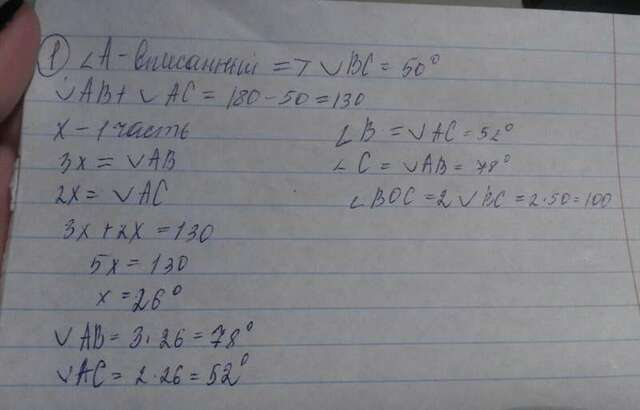 1 ∠A - вписанный => ◡BC = 50°
◡AB + ◡AC = 180 - 50 = 130
x - 1 часть
3x = ◡AB
2x = ◡AC
3x + 2x = 130
5x = 130
x = 26°
◡AB = 3 · 26 = 78°
◡AC = 2 · 26 = 52°
∠B = ◡AC = 52°
∠C = ◡AB = 78°
∠BOC = 2 ◡BC = 2 · 50 = 100